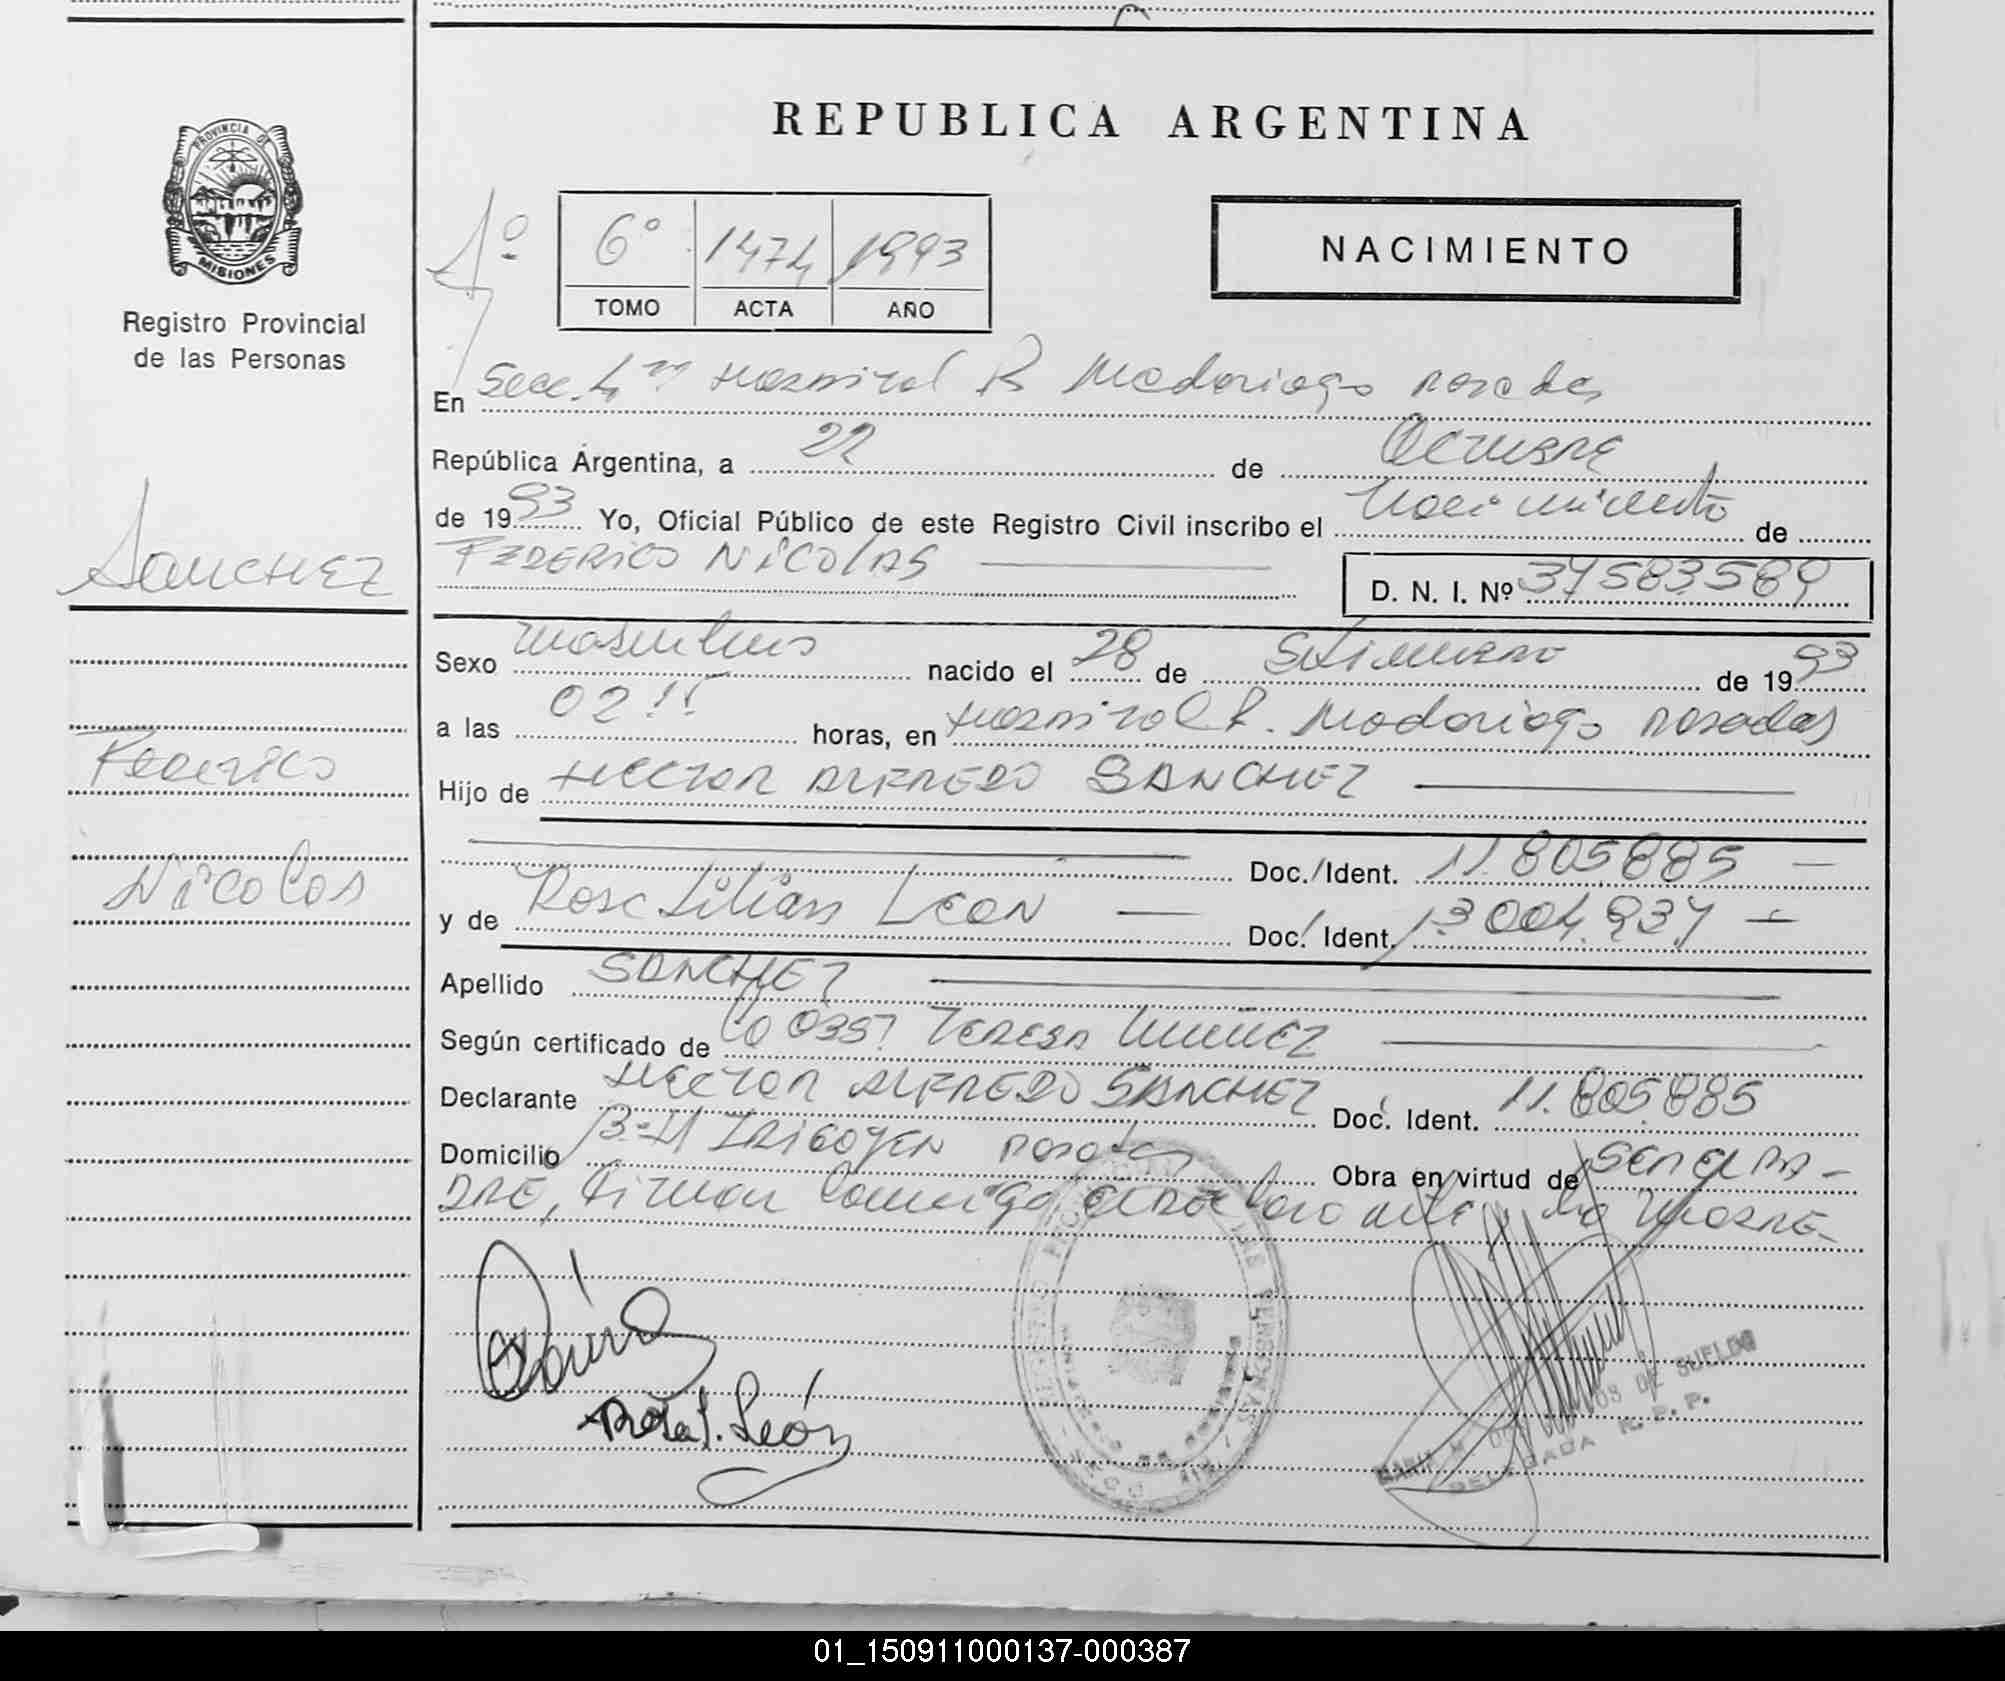 REPUBLICA ARGENTINA
PROVINCIA DE
MISIONES
Registro Provincial
de las Personas
6º 1474 1993
TOMO ACTA AÑO
NACIMIENTO
En Secc. Hospital R Madariaga Posadas
República Argentina, a 22 de Octubre
de 1993 Yo, Oficial Público de este Registro Civil inscribo el Nacimiento de
FEDERICO NICOLAS
D. N. I. Nº 37583589
SANCHEZ
Federico
Nicolas
Sexo masculino nacido el 28 de Setiembre de 1993
a las 02!! horas, en Hospital R. Madariaga Posadas
Hijo de HECTOR ALFREDO SANCHEZ
Doc./Ident. 11.805885
y de Rosa Lilian LEON Doc. Ident. 13004.937
Apellido SANCHEZ
Según certificado de TERESA
Declarante HECTOR ALFREDO SANCHEZ Doc. Ident. 11.805885
Domicilio IRIGOYEN Posadas Obra en virtud de ser el PA-
DRE, Firman Conmigo la MADRE
Rosa L. León
DOS DE SUELDO
DELEGADA R. P. P.
01_150911000137-000387